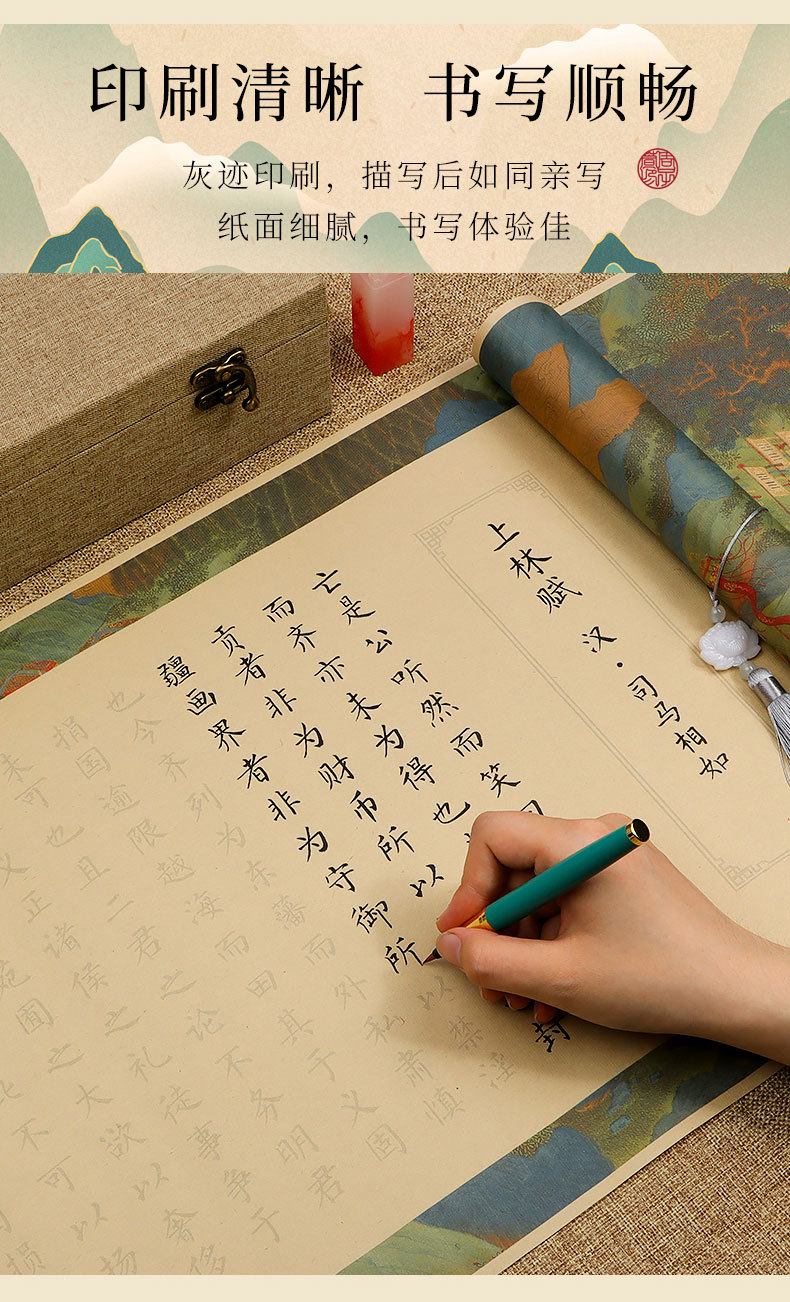 印刷清晰 书写顺畅
灰迹印刷，描写后如同亲写
纸面细腻，书写体验佳
上林赋 汉·司马相如
亡是公听然而笑
而齐亦未为得也
封
贡者非为财币所以
疆画界者非为守御所以禁淫
也今齐列为东藩而外私肃慎
捐国逾限越海而田其于义固
未可也且二君之论不务明君
义正诸侯之礼徒事争于
苑囿之大欲以奢侈
不可以扬
损